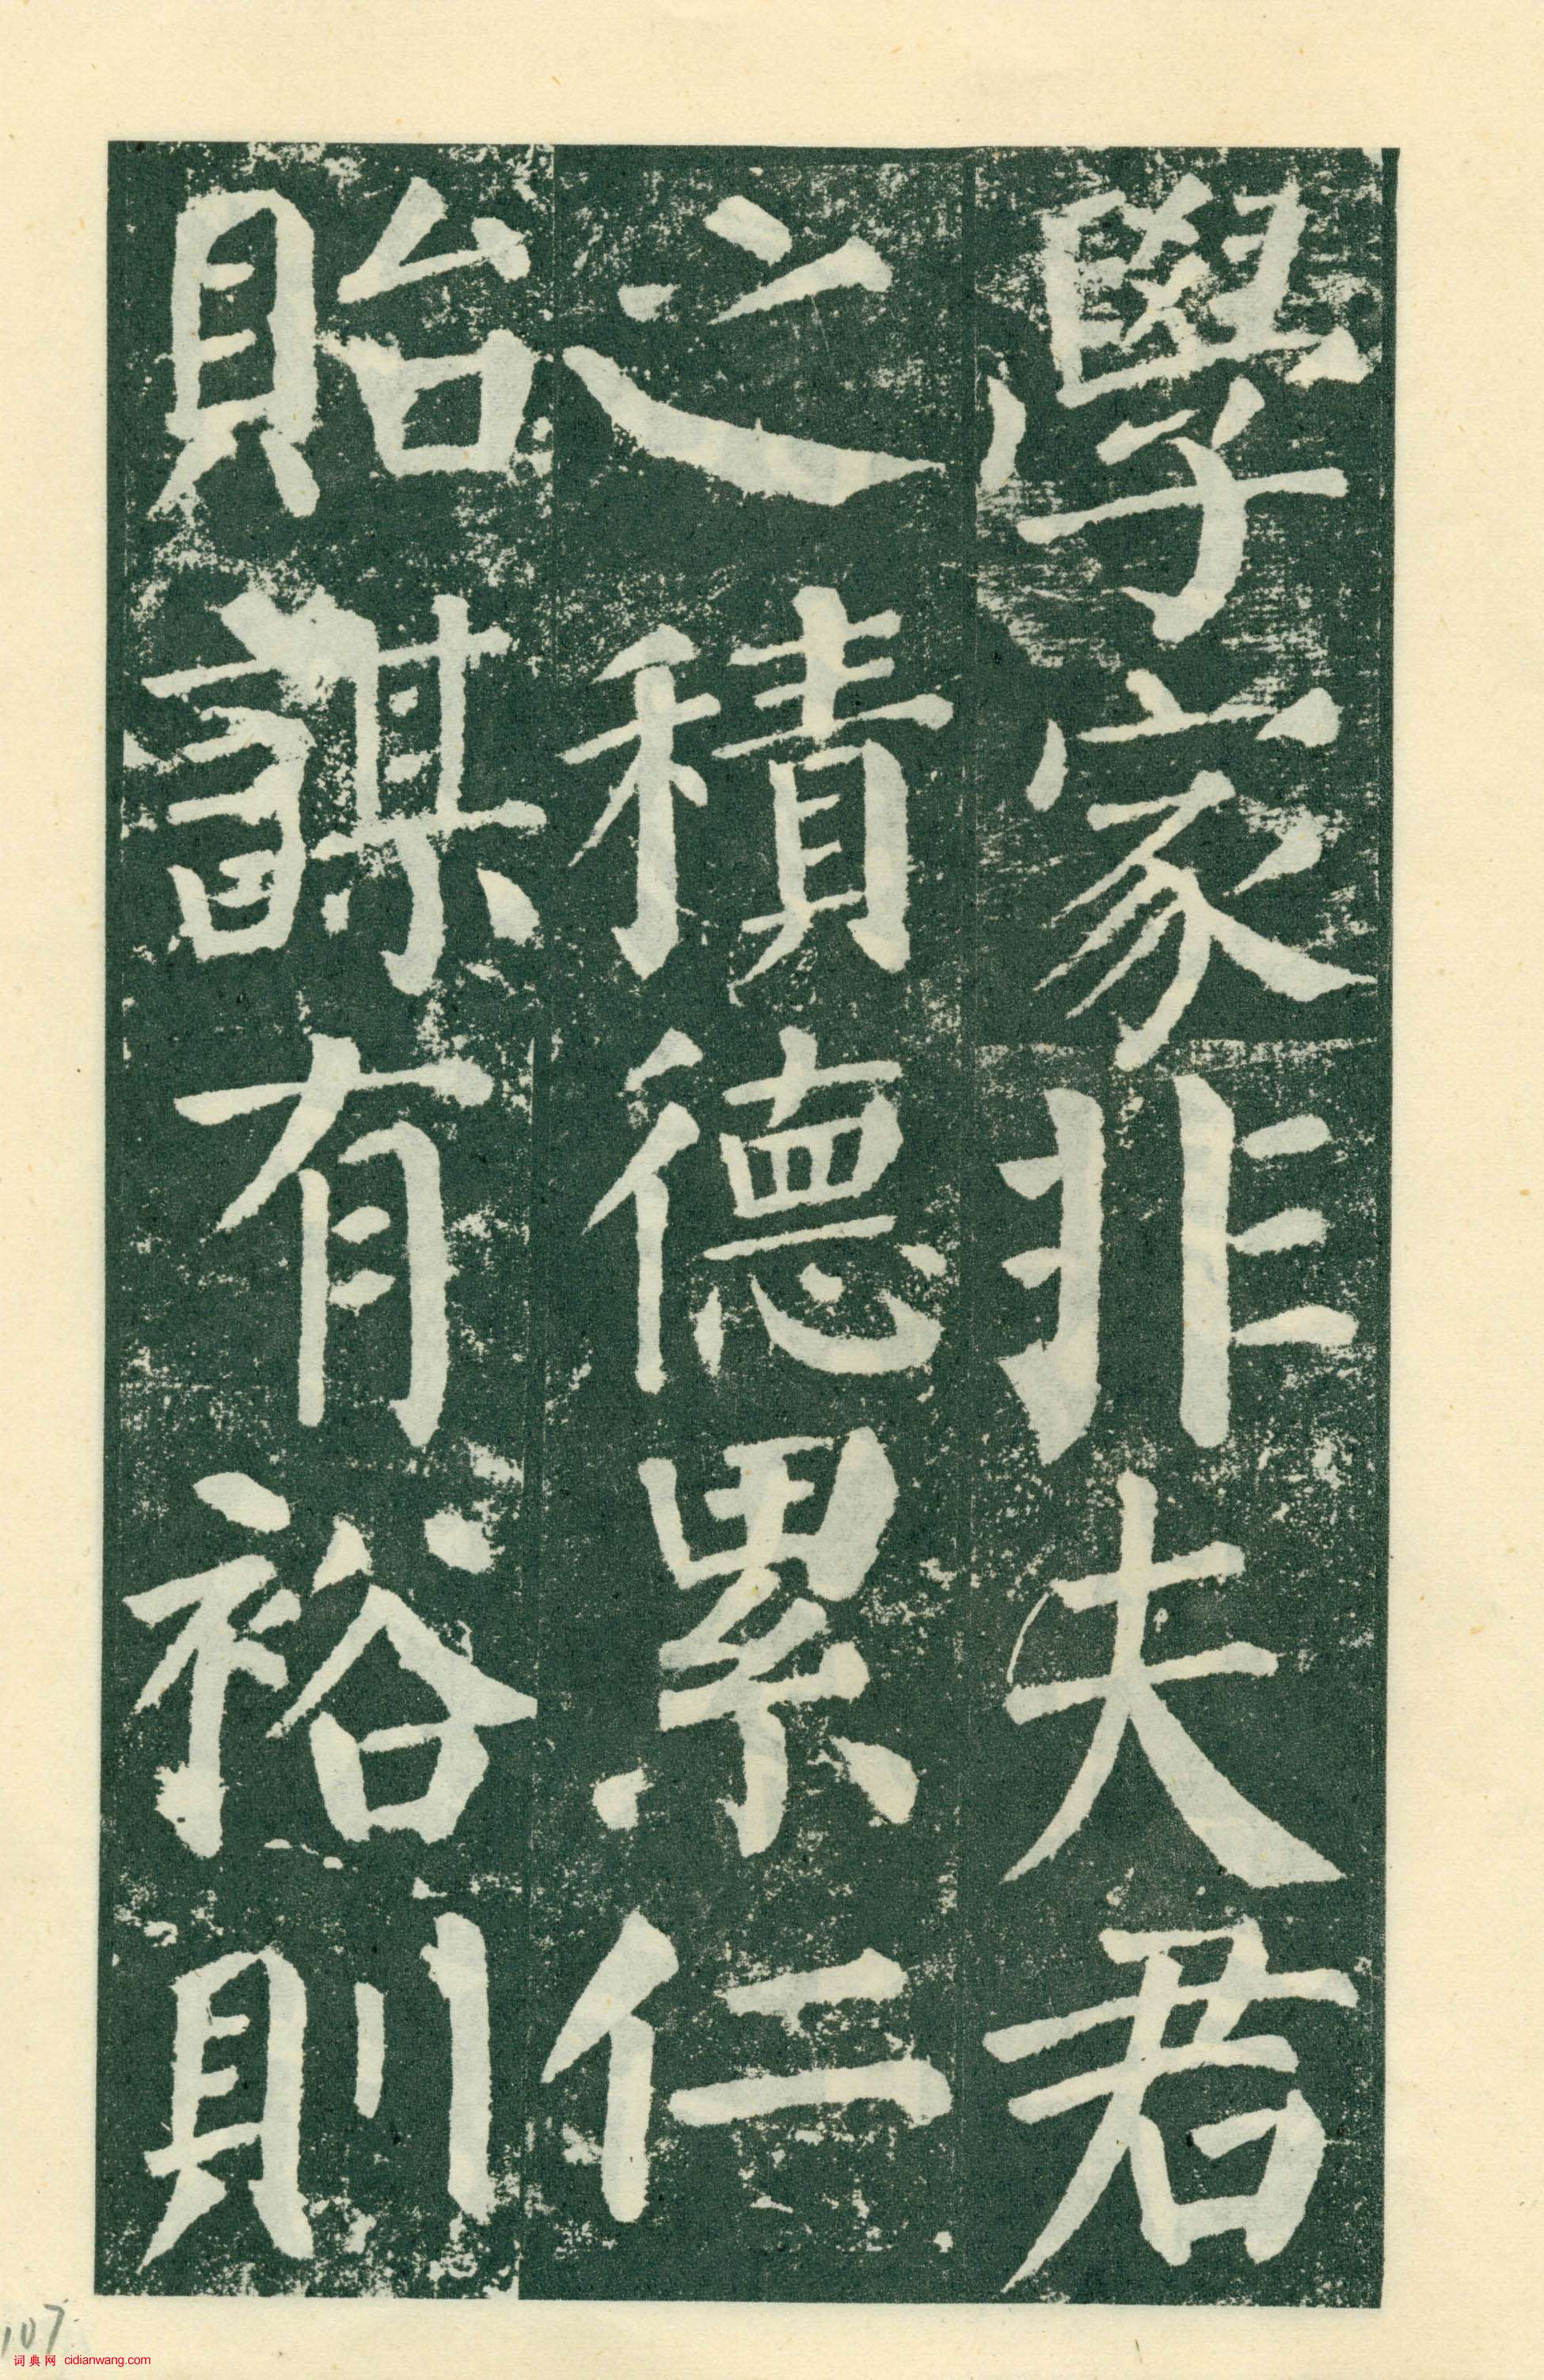 學家非夫君
之積德累仁
貽謀有裕則
107
词典网 cidianwang.com